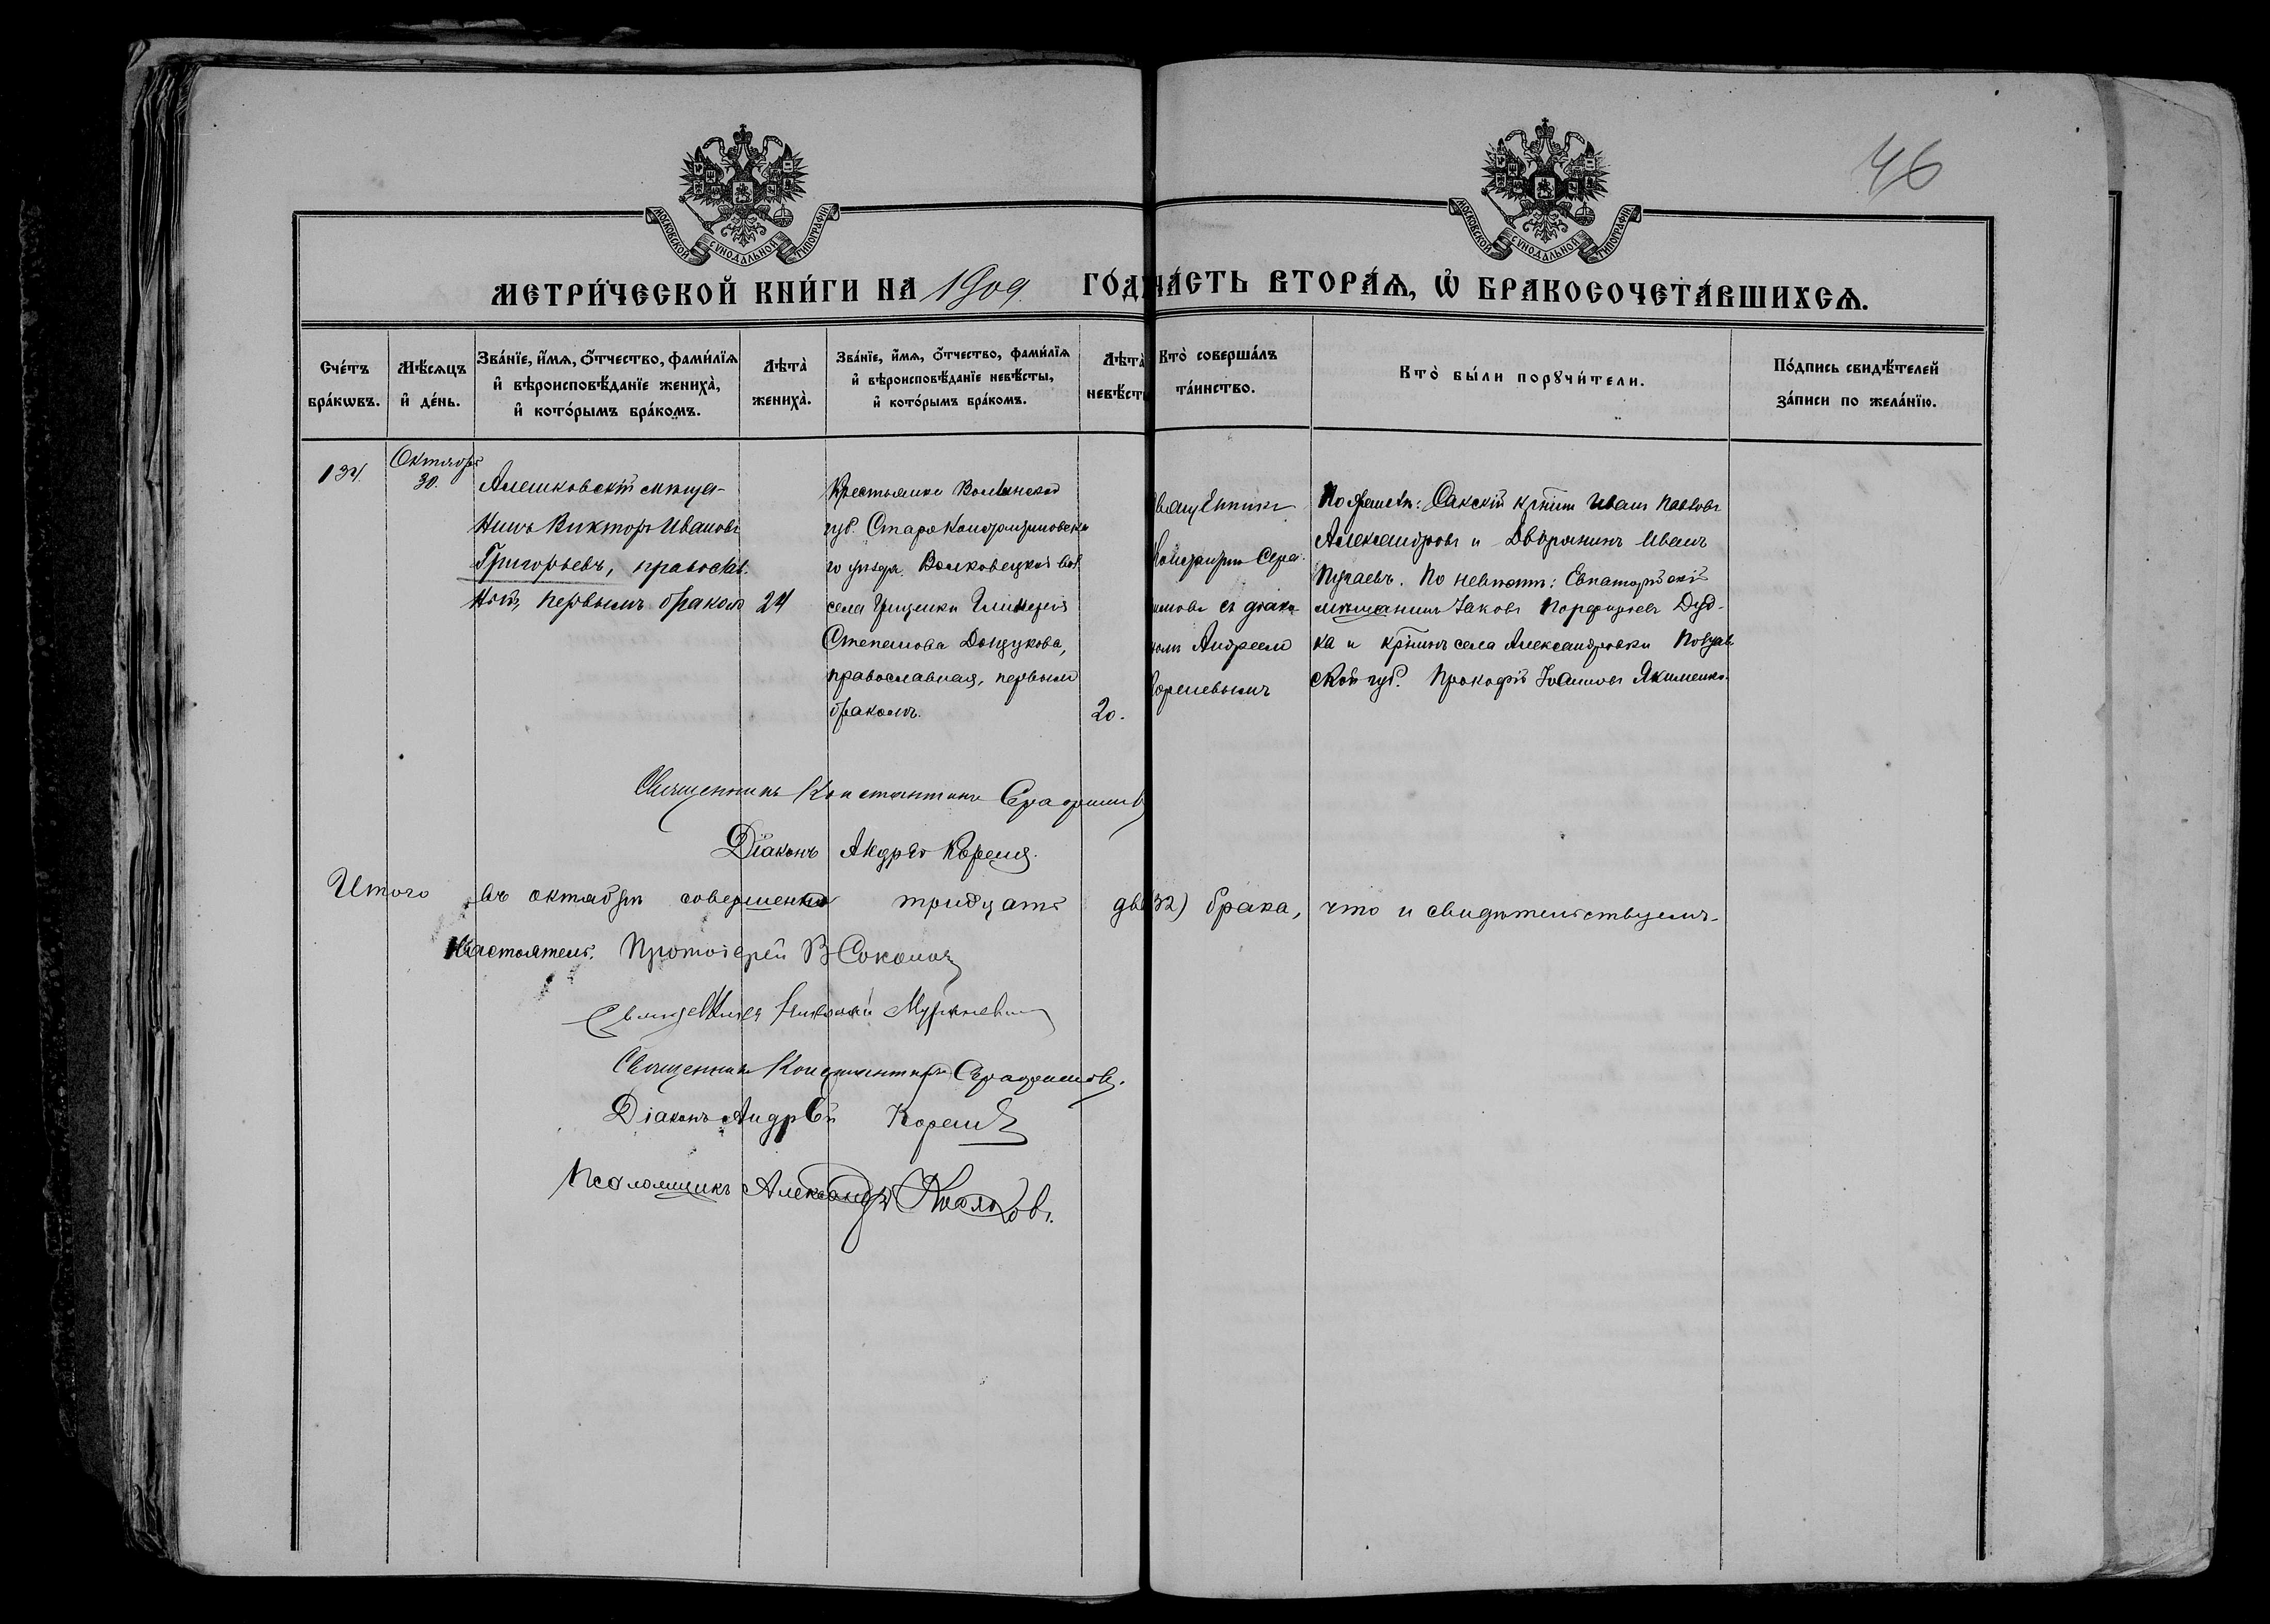 46
МОСКОВСКОЙ СѴНОДАЛЬНОЙ ТИПОГРАФІИ
МОСКОВСКОЙ СѴНОДАЛЬНОЙ ТИПОГРАФІИ
МЕТРИ́ЧЕСКОЙ КНИ́ГИ НА 1909 ГОДЪ
ЧА́СТЬ ВТОРА́Ѧ, Ѡ҆ БРАКОСОЧЕТА́ВШИХСѦ.
Сче́тъ
бра́кѡвъ.
Мѣ́сѧцъ
и҆ де́нь.
Зва́нїе, и҆́мѧ, ѻ҆́тчество, фами́лїѧ
и҆ вѣроисповѣ́данїе жениха̀,
и҆ кото́рымъ бра́комъ.
Лѣта̀
жениха̀.
Зва́нїе, и҆́мѧ, ѻ҆́тчество, фами́лїѧ
и҆ вѣроисповѣ́данїе невѣ́сты,
и҆ кото́рымъ бра́комъ.
Лѣта̀
невѣ́сты
Кто̀ соверша́лъ
та́инство.
Кто̀ бы́ли порꙋчи́тели.
По́дпись свидѣ́телей
за́писи по жела́нїю.
134.
Октября
30.
Алешковскій мѣща-
нинъ Викторъ Ивановъ
Григорьевъ, православ-
ный, первымъ бракомъ
24
Крестьянка Волынской
губ. Старо Константиновска-
го уѣзда. Волковецкой вол.
села Грицики Гликерія
Степанова Донцукова,
православная, первымъ
бракомъ.
20.
Священникъ
Константинъ Сера-
фимовъ съ діако-
номъ Андреемъ
Кореневымъ
По женихѣ: Сакскій кр-нинъ Иванъ Павловъ
Александровъ и Дворянинъ Иванъ
Пугаевъ. По невѣстѣ: Евпаторійскій
мѣщанинъ Іаковъ Порфирьевъ Дуд-
ка и кр-нинъ села Александровки Полтав-
ской губ. Прокофій Іоанновъ Якименко.
Священникъ Константинъ Серафимовъ
Діаконъ Андрей Кореня.
Итого въ октябрѣ совершено тридцать два (32) брака, что и свидѣтельствуемъ.
Настоятель. Протоіерей В Соколовъ
Священникъ Николай
Священникъ Константинъ Серафимовъ.
Діаконъ Андрей Кореня
Псаломщикъ Александръ